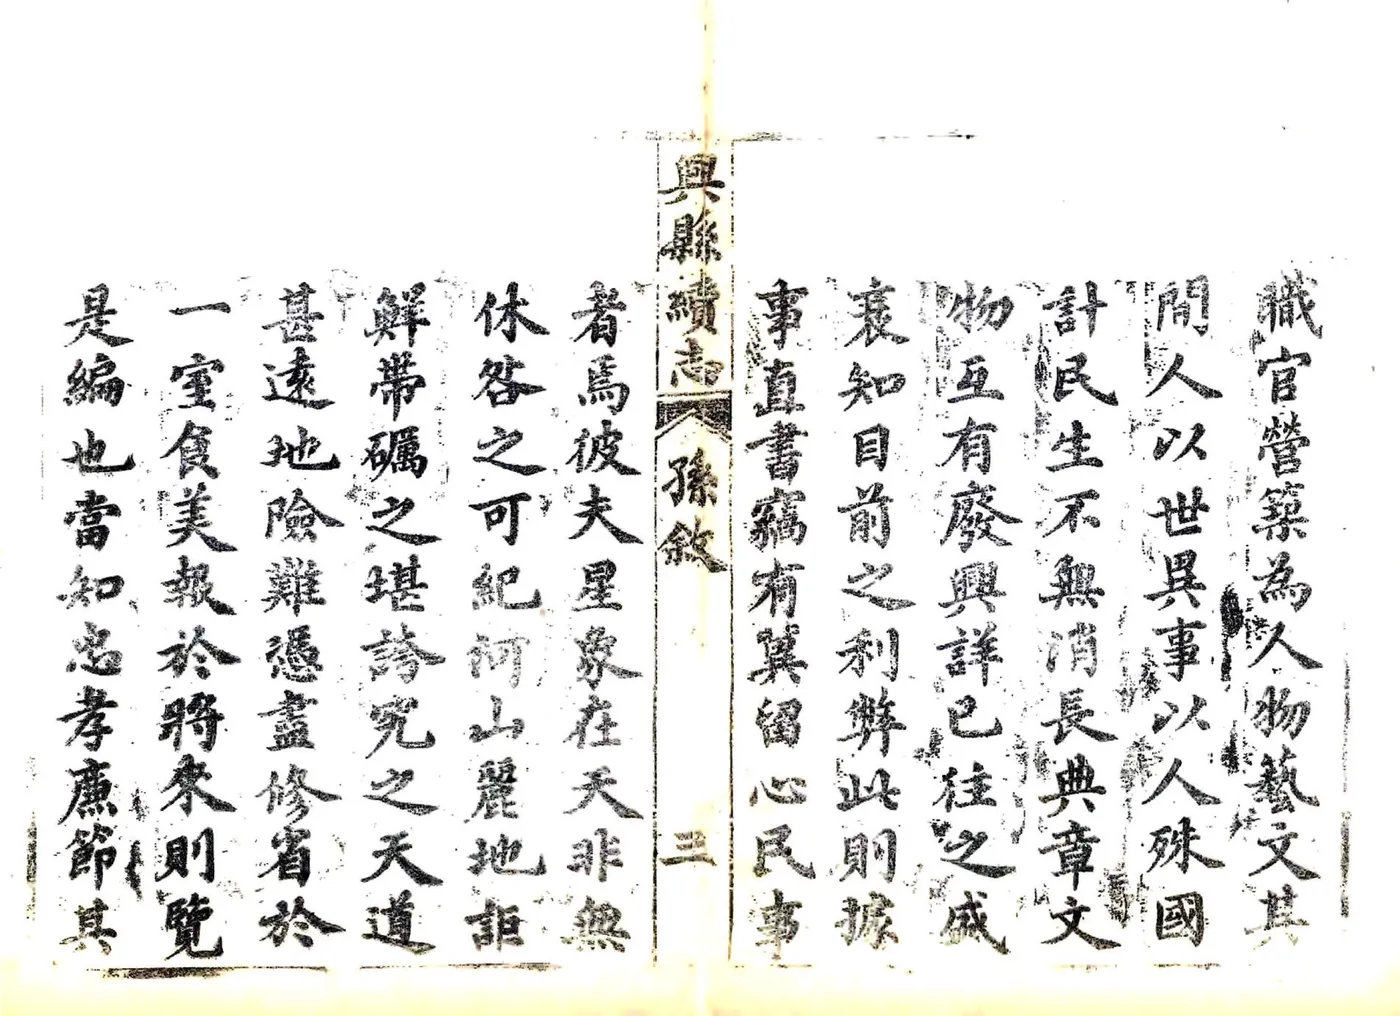 職官營築為人物藝文其
間人以世異事以人殊國
計民生不無消長典章文
物互有廢興詳已往之盛
衰知目前之利弊此則據
事直書竊有冀留心民事
興縣續志 孫敘 三
者焉彼夫星象在天非無
休咎之可紀河山麗地詎
鮮帶礪之堪誇究之天道
甚遠地險難憑盡修省於
一室食美報於將來則覽
是編也當知忠孝廉節其